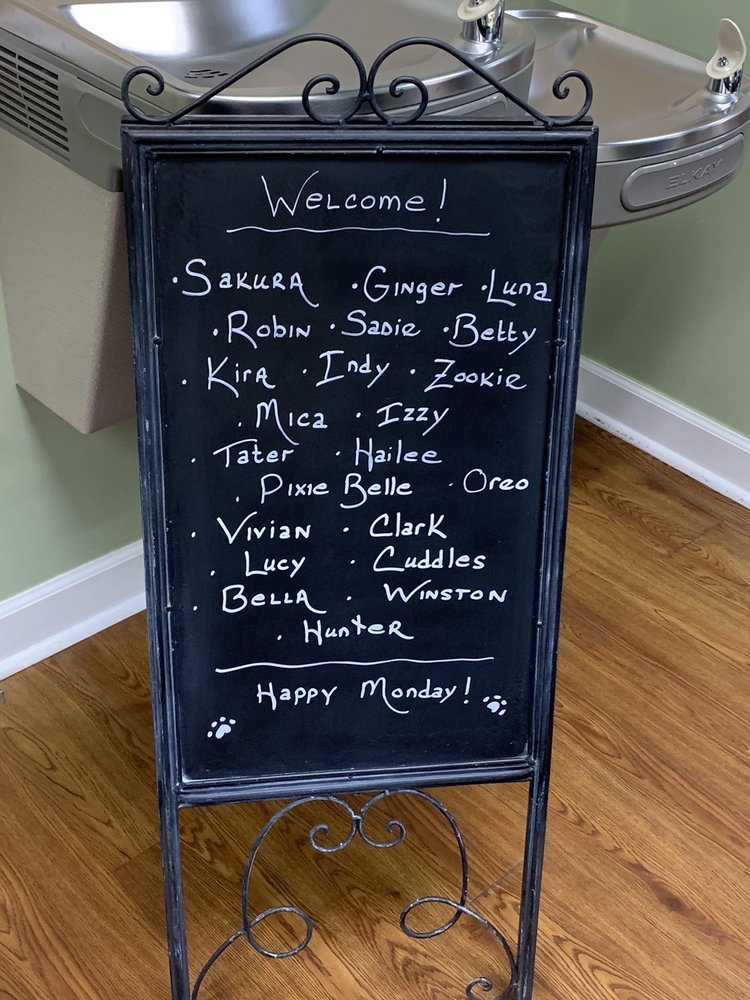 ELKAY
Welcome!
· Sakura · Ginger · Luna
· Robin · Sadie · Betty
· Kira · Indy · Zookie
· Mica · Izzy
· Tater · Hailee
· Pixie Belle · Oreo
· Vivian · Clark
· Lucy · Cuddles
· Bella · Winston
· Hunter
Happy Monday!